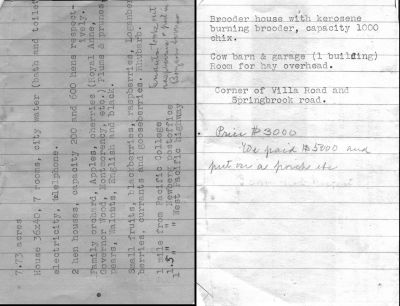 7.73 acres
House 36x40, 7 rooms, city water (bath and toilet
electricity, telephone.
2 hen houses, capacity 200 and 600 hens respect-
ively.
Family orchard, Apples, cherries (Royal Anne,
Governor Wood, Montmorency, etc.) Plums & prunes,
pears, Walnuts, English and black.
Small fruits, blackberries, raspberries, Loganber
berries, currants and gooseberries. Rhubarb.
1 mile from Pacific College
1 " " Newberg postoffice
1.5 " " West Pacific highway
Brooder house with kerosene
burning brooder, capacity 1000
chix.
Cow barn & garage (1 building)
Room for hay overhead.
Corner of Villa Road and
Springbrook road.
Price $3000
We paid $5000 and
put on a porch etc